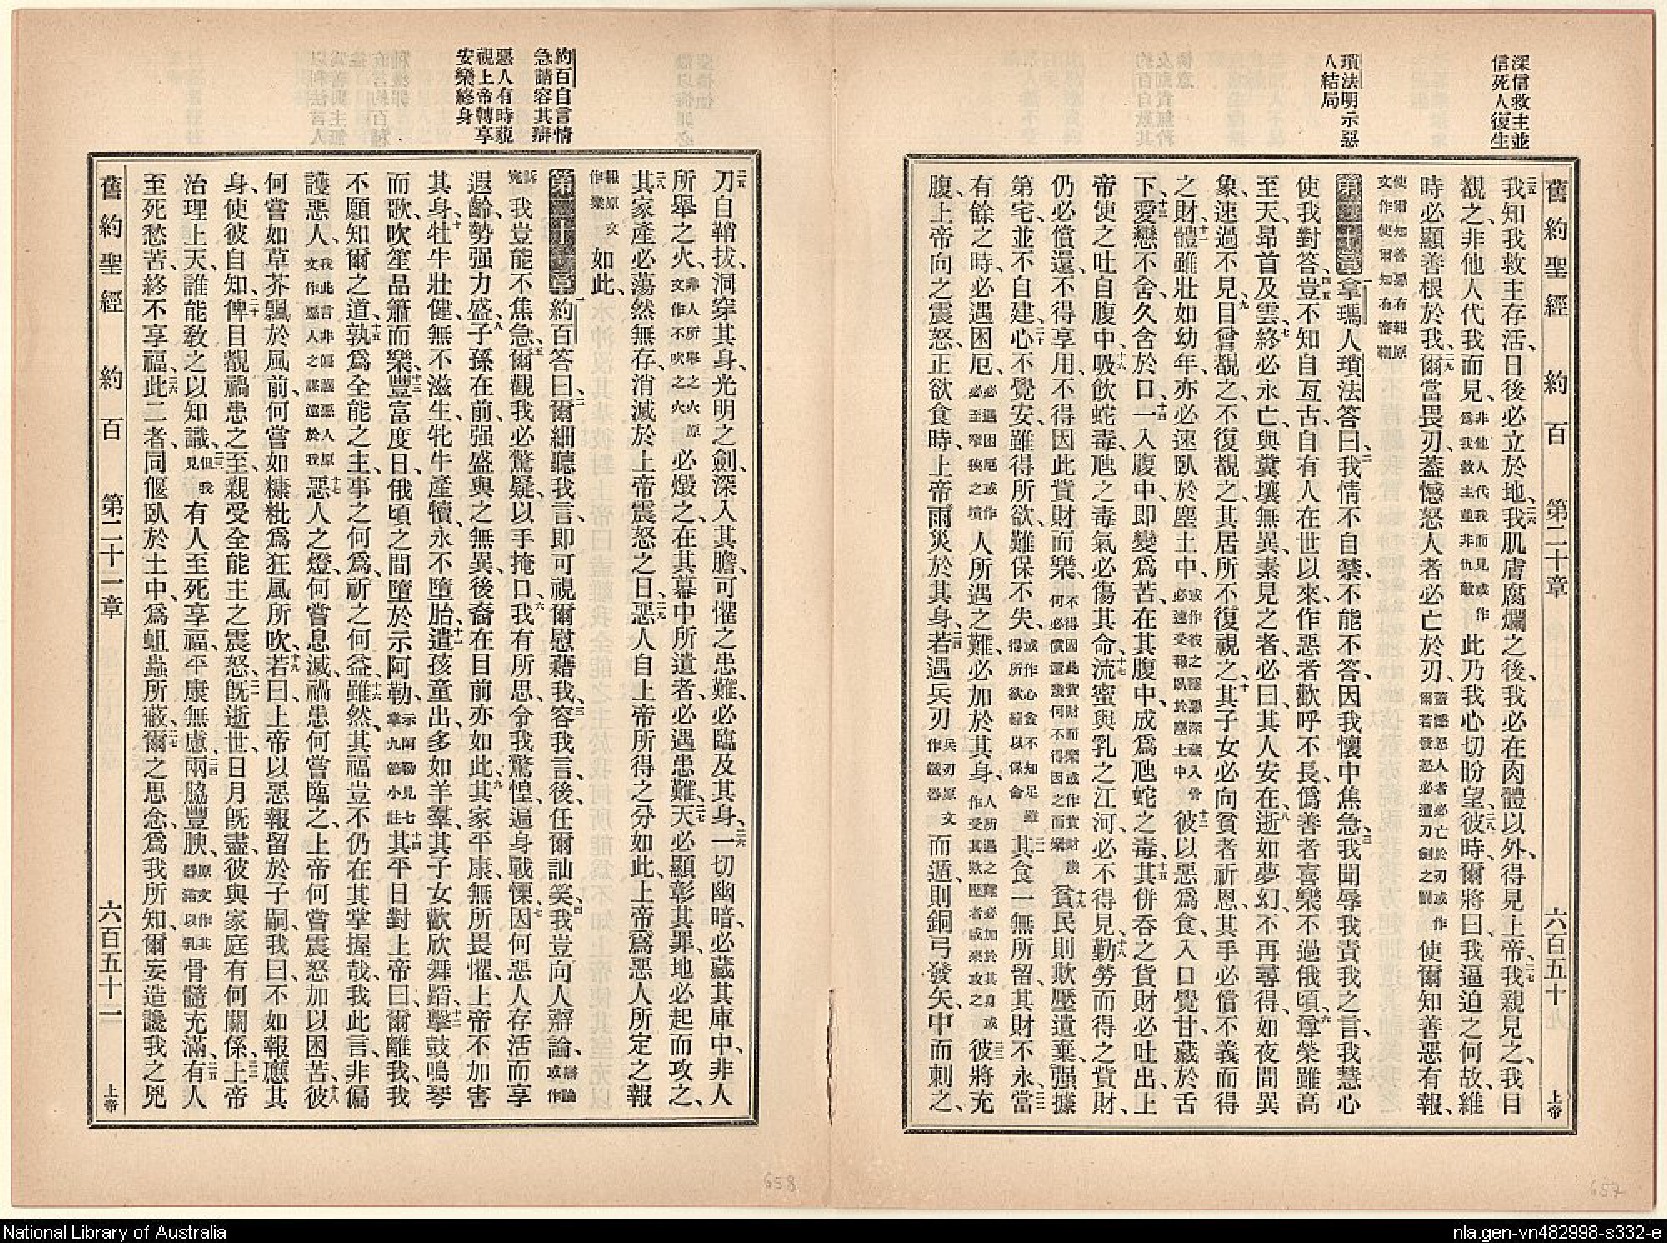 深信救主並
信死人復生
瑣法明示惡
人結局
舊約聖經 約百 第二十章 六百五十九 上帝
我知我救主存活、日後必立於地、我肌膚腐爛之後、我必在肉體以外、得見上帝、我親見之、我目
觀之、非他人代我而見、非他人代我而見或作為我救主並非仇敵 此乃我心切盼望、彼時爾將曰、我逼迫之何故、維
時必顯善根於我、爾當畏刃、蓋憾怒人者必亡於刃、蓋憾怒人者必亡於刃或作爾若發怒必遭刃劍之罰 使爾知善惡有報、
使爾知善惡有報原文作使爾知有審鞫
第二十章 拿瑪人瑣法答曰、我情不自禁、不能不答、因我懷中焦急、我聞辱我責我之言、我慧心
使我對答、豈不知自亙古、自有人在世以來、作惡者歡呼不長、偽善者喜樂不過俄頃、尊榮雖高
至天、昂首及雲、終必永亡、與糞壤無異、素見之者、必曰、其人安在、逝如夢幻、不再尋得、如夜間異
象、速過不見、目曾覩之、不復覩之、其居所不復視之、其子女必向貧者祈恩、其手必償不義而得
之財、體雖壯如幼年、亦必速臥於塵土中、或作彼之隱惡深藏入骨必速受報臥於塵土中 彼以惡為食、入口覺甘、藏於舌
下、愛戀不舍、久含於口、一入腹中、即變為苦、在其腹中、成為虺蛇之毒、其併吞之貨財必吐出、上
帝使之吐自腹中、吸飲蛇毒、虺之毒氣必傷其命、流蜜與乳之江河、必不得見、勤勞而得之貲財、
仍必償還、不得享用、不得因此貲財而樂、不得因此貲財而樂或作貲財幾何必償還幾何不得因之而樂 貧民則欺壓遺棄、强據
第宅、並不自建、心不覺安、雖得所欲、難保不失、或作心貪不知足雖得所欲難以保命 其食一無所留、其財不永、當
有餘之時、必遇困厄、必遇困厄或作必至窄狹之境 人所遇之難、必加於其身、人所遇之難必加於其身或作受其欺壓者或來攻之 彼將充
腹、上帝向之震怒、正欲食時、上帝雨災於其身、若遇兵刃、兵刃原文作鐵器 而遁、則銅弓發矢、中而刺之、
約百自言情
急請容其辯
惡人有時藐
視上帝轉享
安樂終身
刀自鞘拔、洞穿其身、光明之劍、深入其膽、可懼之患難、必臨及其身、一切幽暗、必藏其庫中、非人
所舉之火、非人所舉之火原文作不吹之火 必燬之、在其幕中所遺者、必遇患難、天必顯彰其罪、地必起而攻之、
其家產必蕩然無存、消滅於上帝震怒之日、惡人自上帝所得之分如此、上帝為惡人所定之報
報原文作業 如此、
第二十一章 約百答曰、爾細聽我言、即可視爾慰藉我、容我言、後任爾訕笑、我豈向人辯論、辯論或作
訴冤 我豈能不焦急、爾觀我必驚疑、以手掩口、我有所思、令我驚惶、遍身戰慄、因何惡人存活而享
遐齡、勢强力盛、子孫在前、强盛與之無異、後裔在目前亦如此、其家平康、無所畏懼、上帝不加害
其身、牡牛壯健、無不滋生、牝牛產犢、永不墮胎、遣孩童出、多如羊羣、其子女歡欣舞蹈、擊鼓鳴琴
而歌、吹笙品簫而樂、豐富度日、俄頃之間、墮於示阿勒、示阿勒見七章九節小註 其平日對上帝曰、爾離我、我
不願知爾之道、孰為全能之主、事之何為、祈之何益、雖然、其福豈不仍在其掌握哉、我此言、非偏
護惡人、我此言非偏護惡人原文作惡人之謀遠於我 惡人之燈、何嘗息滅、禍患何嘗臨之、上帝何嘗震怒、加以困苦、彼
何嘗如草芥飄於風前、何嘗如糠粃為狂風所吹、若曰、上帝以惡報留於子嗣、我曰、不如報應其
身、使彼自知、俾目覩禍患之至、親受全能主之震怒、既逝世、日月既盡、彼與家庭有何關係、上帝
治理上天、誰能敎之以知識、但我見 有人至死享福、平康無慮、兩脇豐腴、原文作其器滿以乳 骨髓充滿、有人
至死愁苦、終不享福、此二者、同偃臥於土中、為蛆蟲所蔽、爾之思念、為我所知、爾妄造讒我之兇
舊約聖經 約百 第二十一章 六百五十一 上帝
658
657
National Library of Australia
nla.gen-vn482998-s332-e